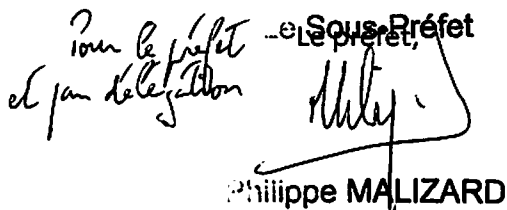 Pour le préfet
et par délégation
Le Sous-Préfet
Le préfet,
Philippe MALIZARD